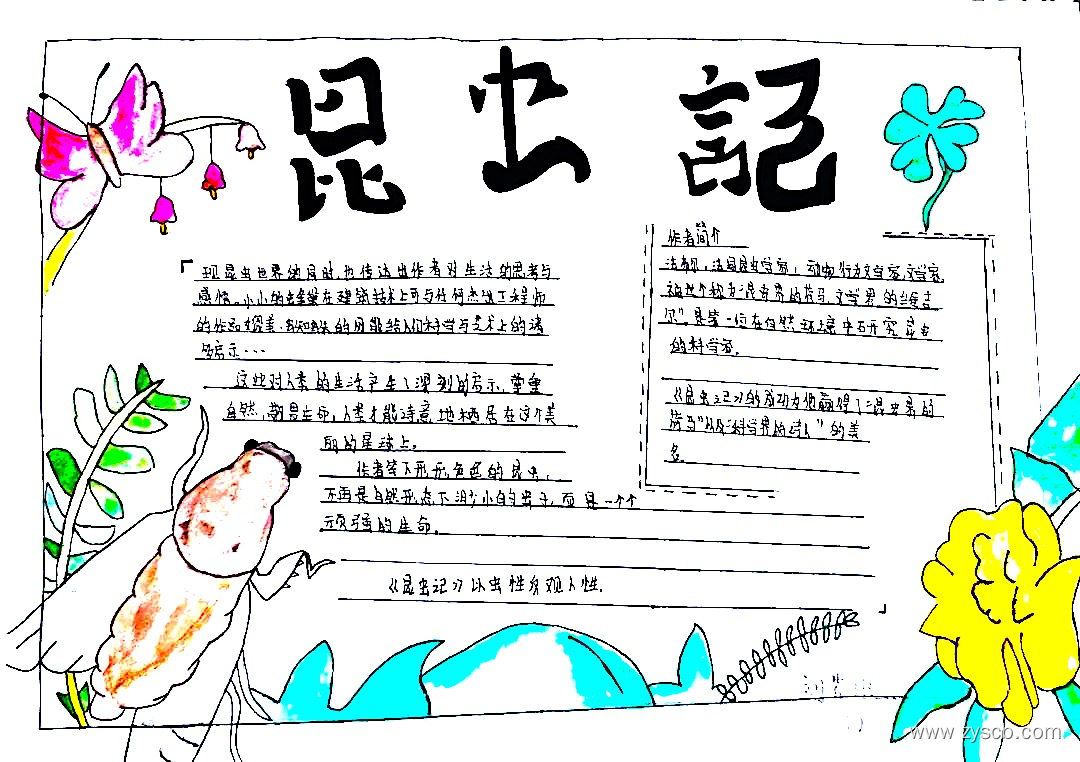 昆虫記
现昆虫世界的同时,也传达出作者对生活的思考与
感悟。小小的在建筑技术上可与任何杰出工程师
的作品媲美,的用能给人们科学与艺术上的诸
多启示…
这些对人类的生活产生了深刻的启示,尊重
自然,敬畏生命,人类才能诗意地栖居在这个美
丽的星球上。
作者笔下形形色色的昆虫,
不再是自然形态下渺小的虫子,而是一个个
顽强的生命。
《昆虫记》以虫性反观人性。
作者简介
法布尔,法国昆虫学家,动物行为学家,文学家,
被世个称为"昆虫界的荷马,文学界的维吉
尔",是第一位在自然环境中研究昆虫
的科学家。
《昆虫记》的成功为他赢得了"昆虫界的
荷马"以及"科学界的诗人"的美
名。
www.zysco.com